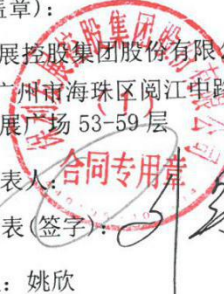 盖章):
展控股集团股份有限
广州市海珠区阅江中路
展广场 53-59层
合同专用章
表人:
表(签字):
: 姚欣